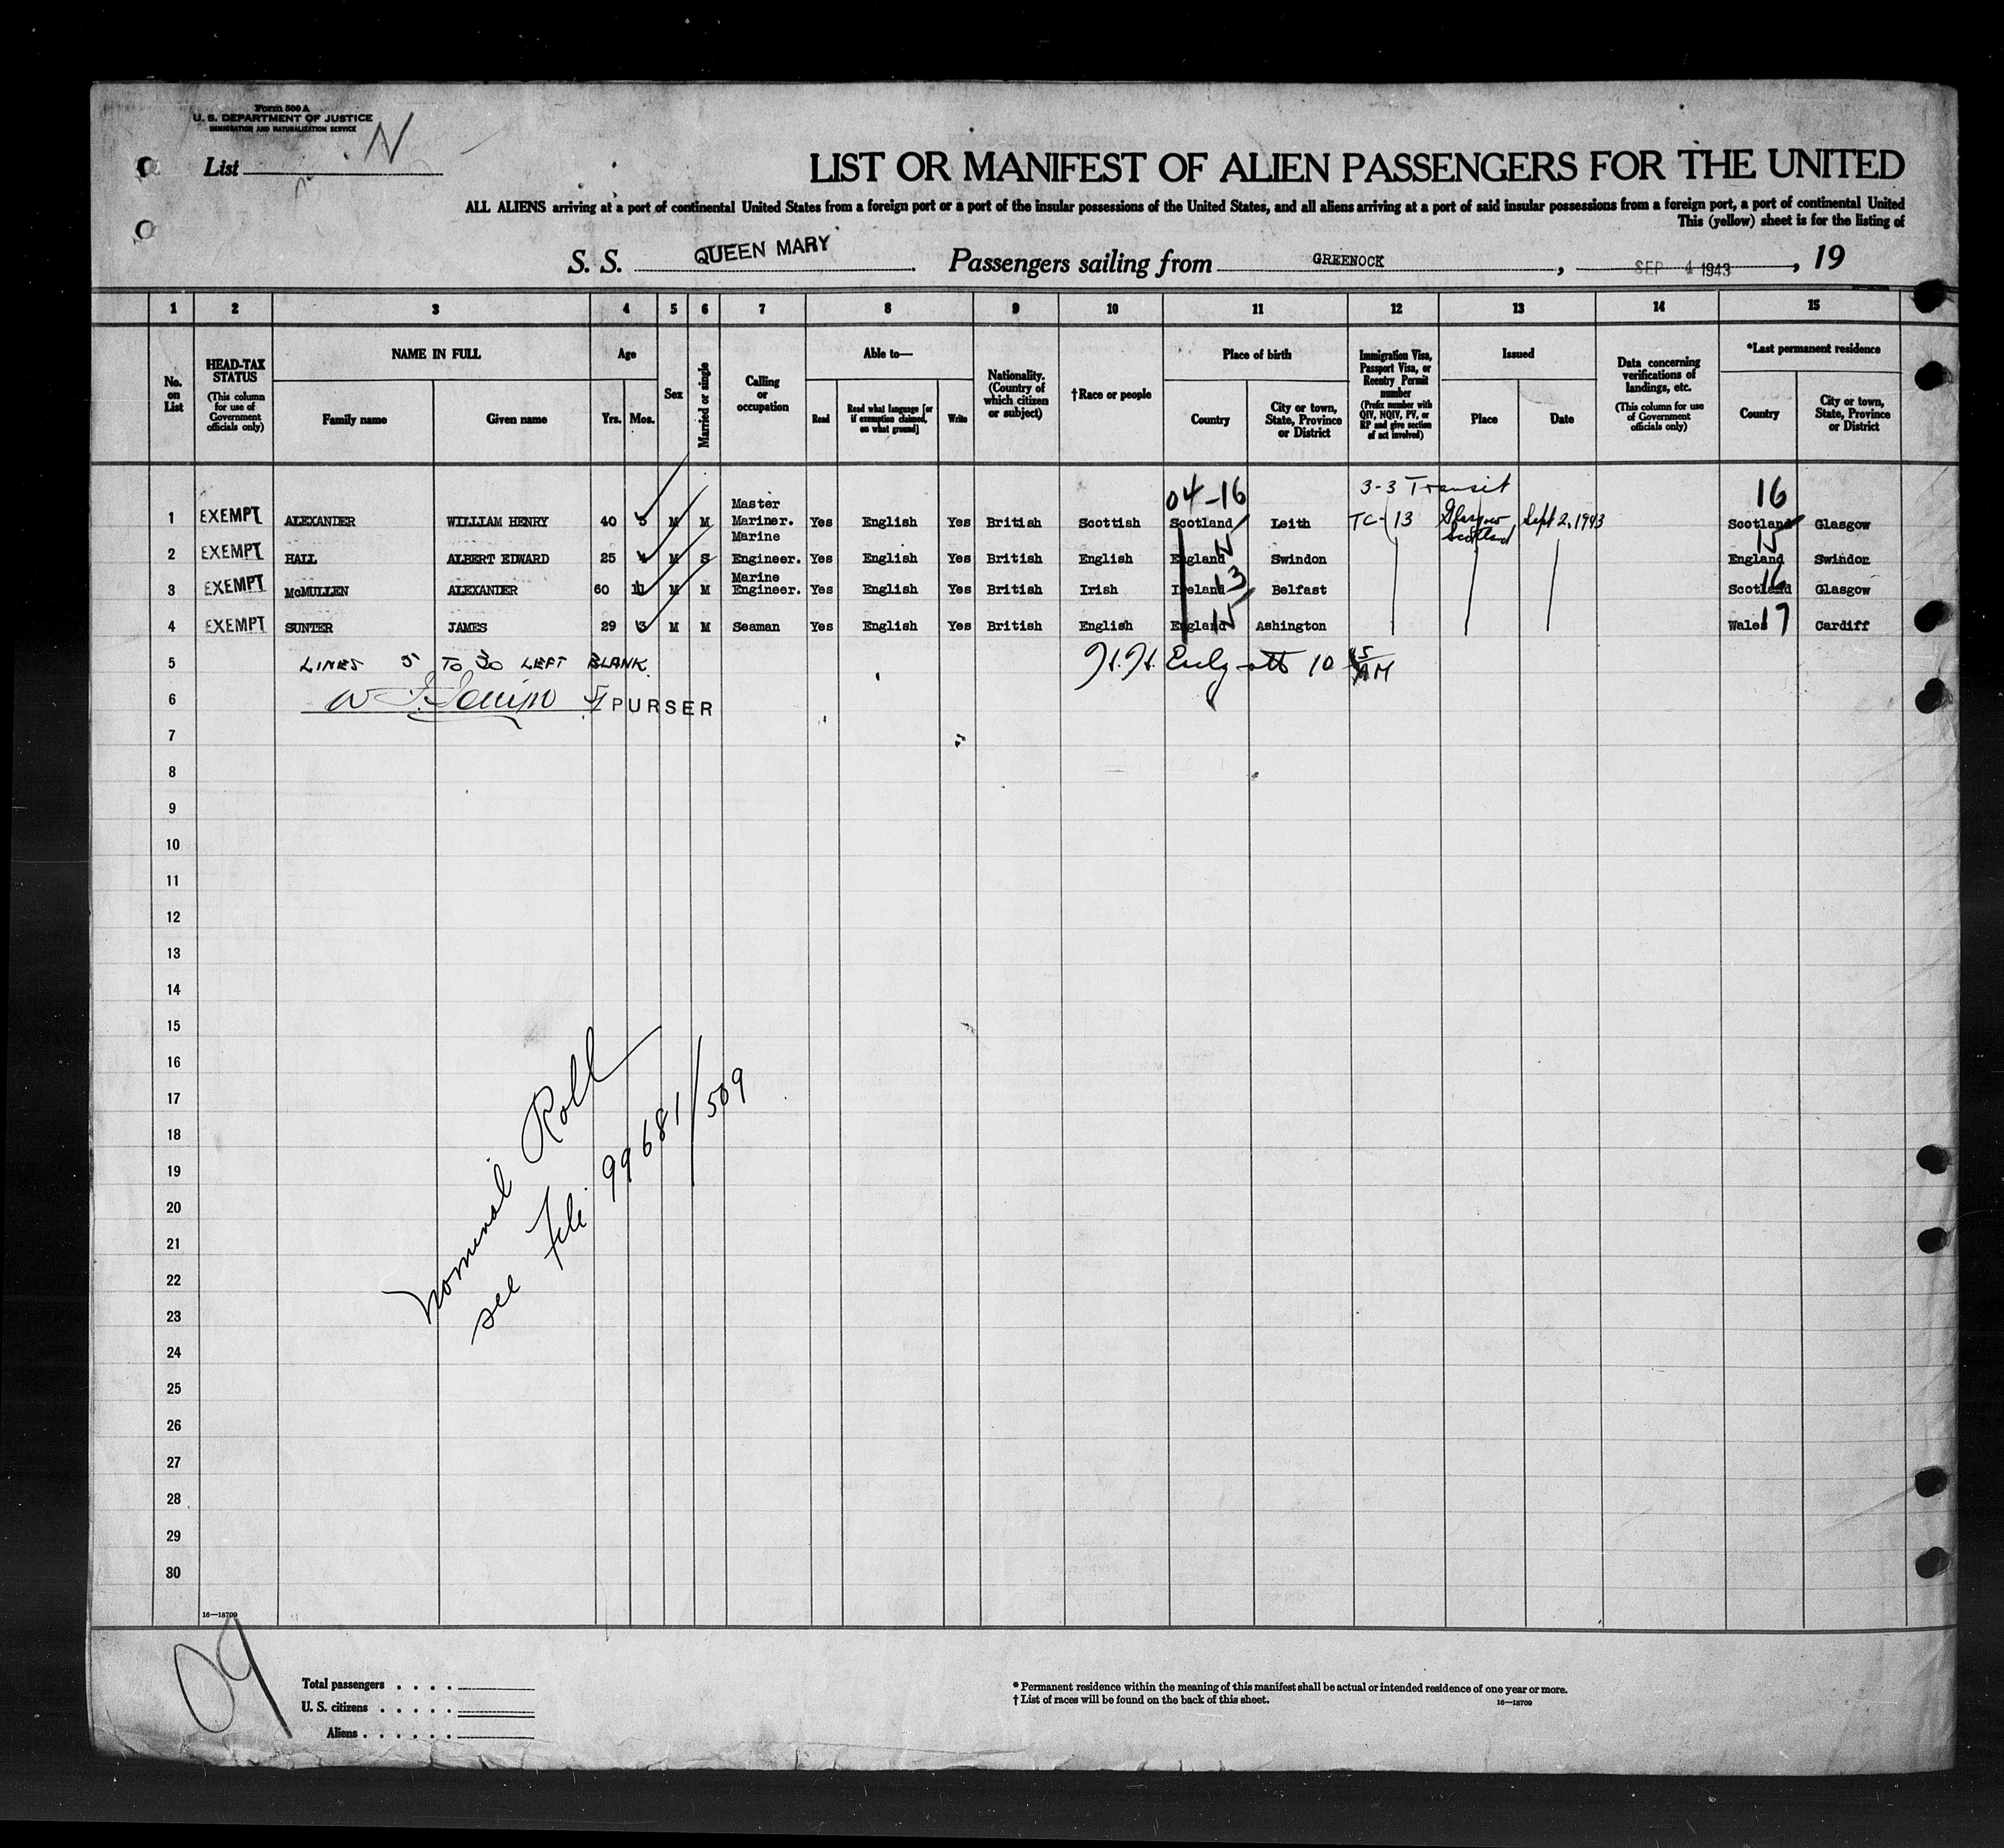 Form 500 A
U. S. DEPARTMENT OF JUSTICE
IMMIGRATION AND NATURALIZATION SERVICE
List N
LIST OR MANIFEST OF ALIEN PASSENGERS FOR THE UNITED
ALL ALIENS arriving at a port of continental United States from a foreign port or a port of the insular possessions of the United States, and all aliens arriving at a port of said insular possessions from a foreign port, a port of continental United
This (yellow) sheet is for the listing of
S. S. QUEEN MARY Passengers sailing from GREENOCK, SEP 4 1943, 19
1 2 3 4 5 6 7 8 9 10 11 12 13 14 15
No. on List
HEAD-TAX STATUS (This column for use of Government officials only)
NAME IN FULL Family name Given name
Age Yrs. Mos.
Sex
Married or single
Calling or occupation
Able to— Read Read what language [or if exemption claimed, on what ground] Write
Nationality. (Country of which citizen or subject)
†Race or people
Place of birth Country City or town, State, Province or District
Immigration Visa, Passport Visa, or Reentry Permit number (Prefix number with QIV, NQIV, PV, or RP and give section of act involved)
Issued Place Date
Data concerning verifications of landings, etc. (This column for use of Government officials only)
*Last permanent residence Country City or town, State, Province or District
04-16 3-3 Transit 16
1 EXEMPT ALEXANDER WILLIAM HENRY 40 5 M M Master Mariner. Yes English Yes British Scottish Scotland Leith TC-13 Glasgow Scotland Sept 2, 1943 Scotland Glasgow
2 EXEMPT HALL ALBERT EDWARD 25 4 M S Marine Engineer. Yes English Yes British English England 15 Swindon England 15 Swindon
3 EXEMPT McMULLEN ALEXANDER 60 11 M M Marine Engineer. Yes English Yes British Irish Ireland 13 Belfast Scotland 16 Glasgow
4 EXEMPT SUNTER JAMES 29 3 M M Seaman Yes English Yes British English England 15 Ashington Wales 17 Cardiff
5 LINES 5 TO 30 LEFT BLANK. 10 15 AM
6 PURSER
7
8
9
10
11
12
13
14
15
16
17
18
19
20
21
22
23
24
25
26
27
28
29
30
Nominal Roll
see File 99681/509
16—18709
09
Total passengers . . . .
U. S. citizens . . . . .
Aliens . . . . . .
* Permanent residence within the meaning of this manifest shall be actual or intended residence of one year or more.
† List of races will be found on the back of this sheet.
16—18709